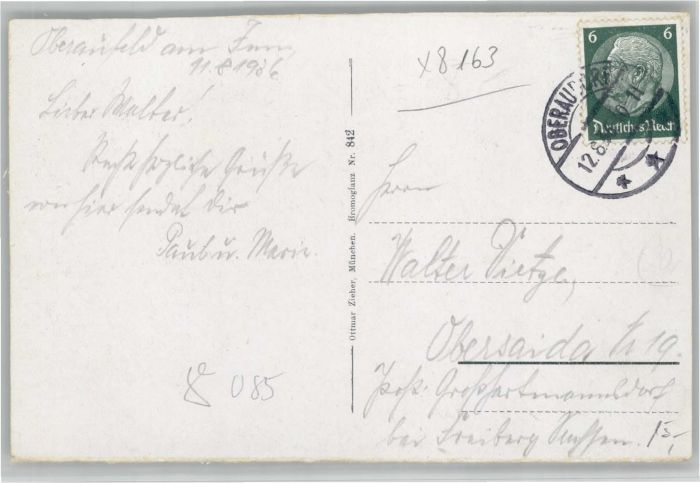 Oberaufdorf am Inn
11.8.1936
Lieber Walter!
Recht herzliche Grüße
von hier sendet Dir
Paul u. Marie.
085
Ottmar Zieher, München. Bromoglanz Nr. 842
x8163
6 6
Deutsches Reich
OBERAUDORF
12.8.
Herrn
Walter Vietze,
Obersaida N 19.
Post: Großhartmannsdorf
bei Freiberg Sachsen.
15,-